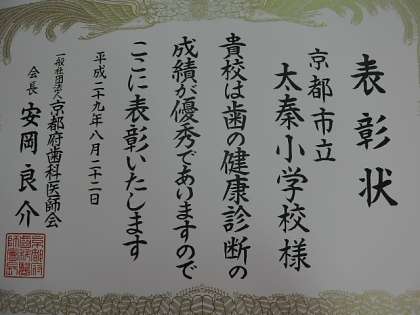 表彰状
京都市立
太秦小学校様
貴校は歯の健康診断の
成績が優秀でありますので
ここに表彰いたします
平成二十九年八月二十二日
一般社団法人京都府歯科医師会
会長 安岡良介